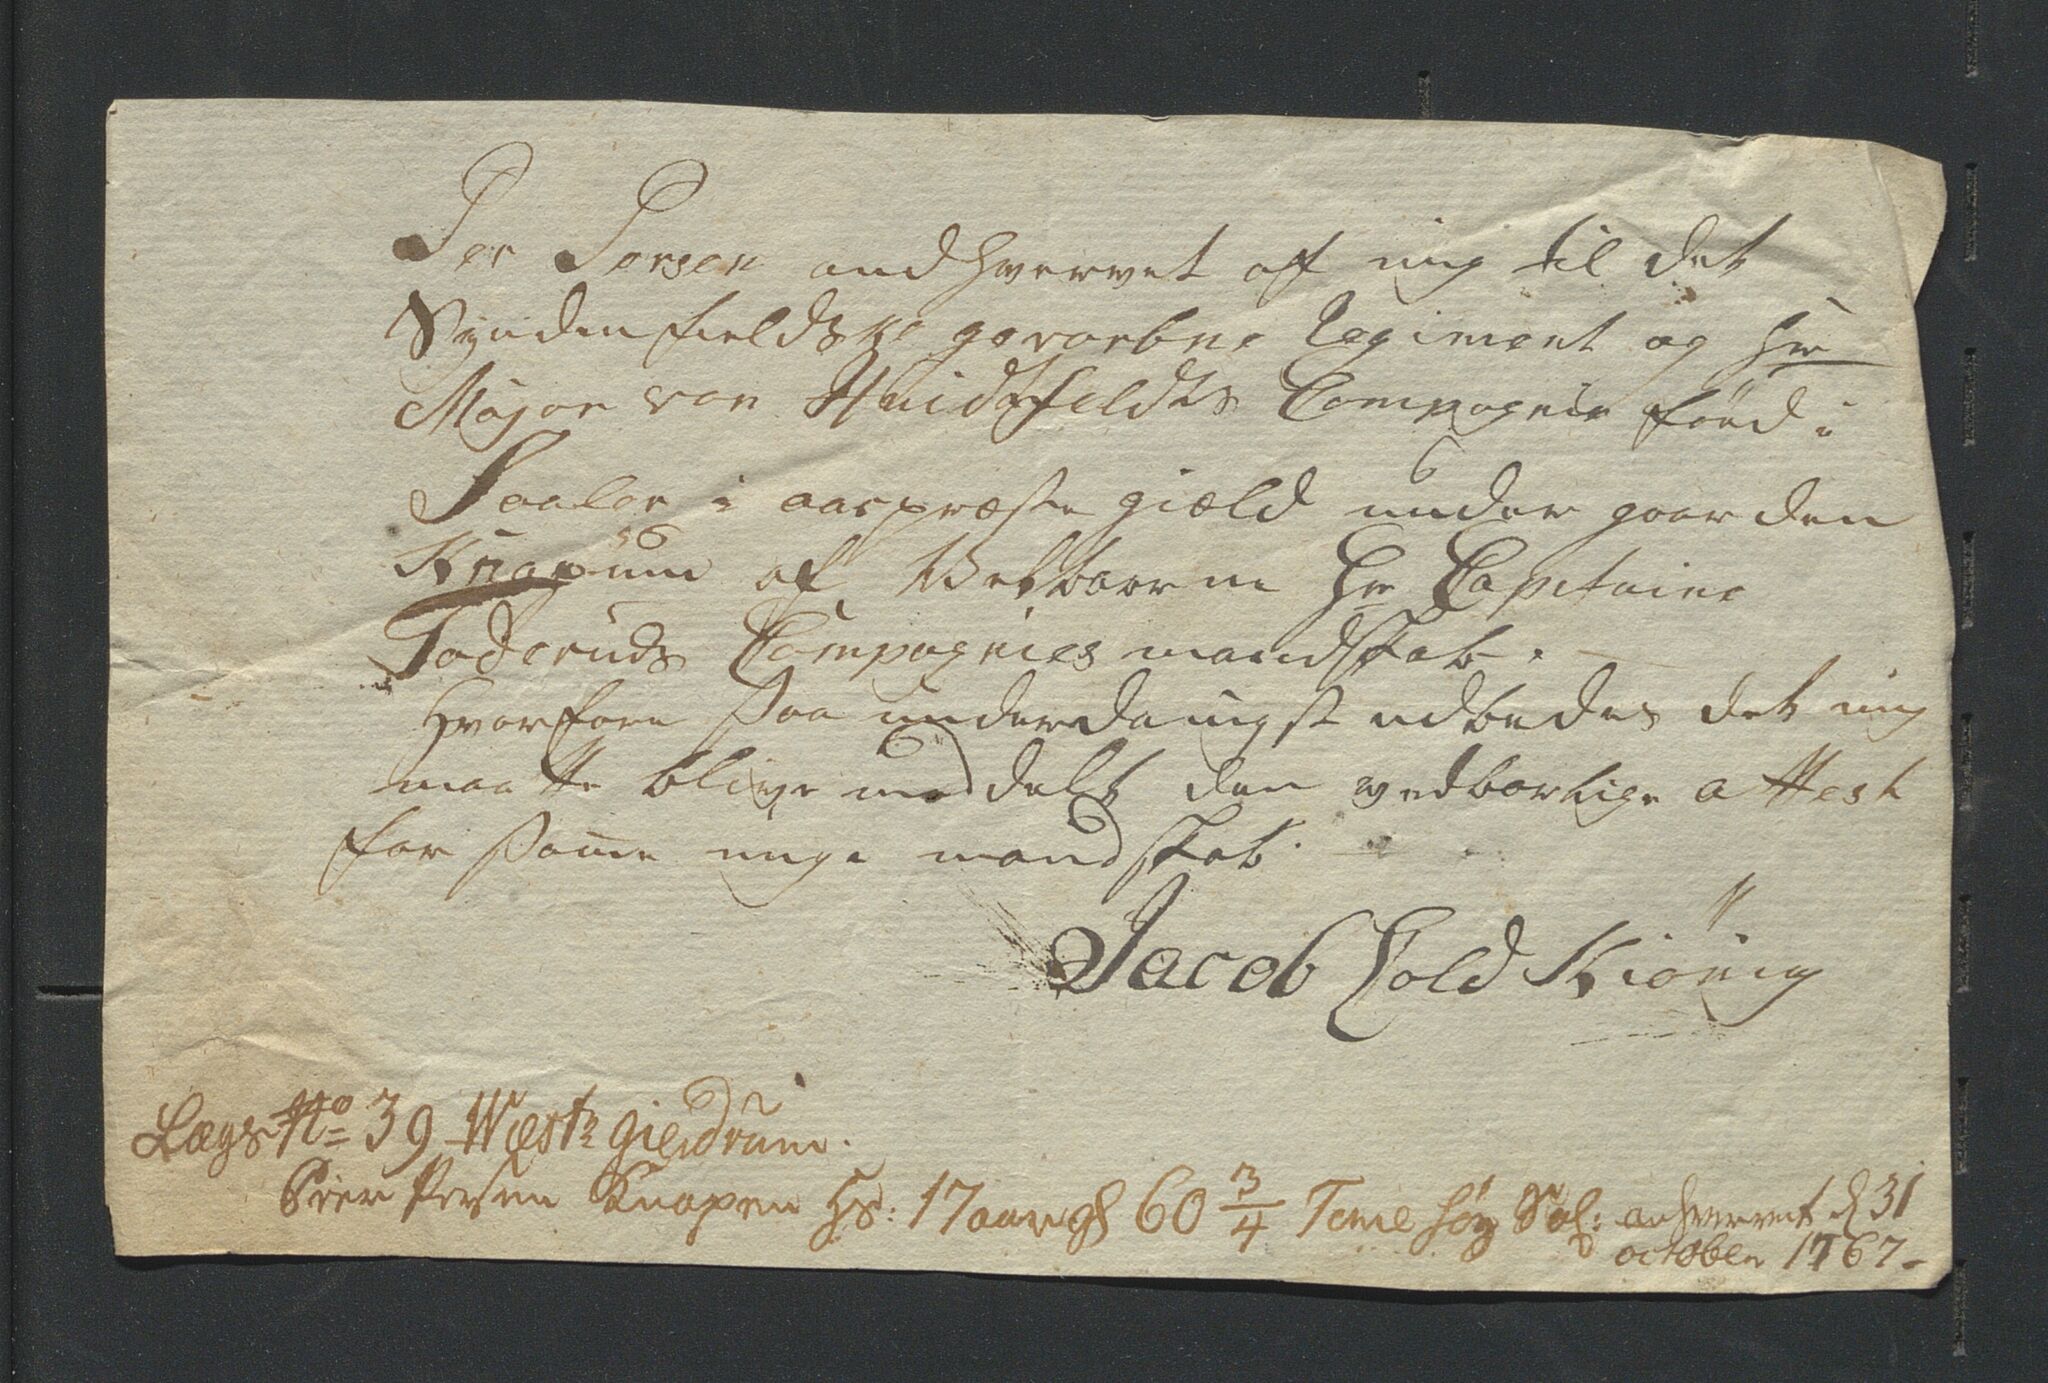 Per Persen andhvervet af mig til det
Syndenfieldske gevorbne Regiment og Hr
Major von Huidtfeldts Compagnie föed i
Saaler i aaspræste giæld under gaarden
Knapüm af Velbaarne Hr Capitaine
Toderuds Compagnies mandskab.
Hvorfore saa underdanigst udbedes det mig
maatte blive meddelt den vedbørlige attest
for samme unge mandskab.
Jacob Cold Kiönig
Lægs No 39 West giendrum.
Peer Persen Knapen 17 aar gl 60 3/4 Tome höy anhvervet d 31
october 1767